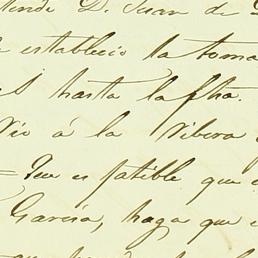 D. Juan de
establecio la toma
hasta la fha.
Rio á la Ribera
= Que es fatible que
Garcia, haga que